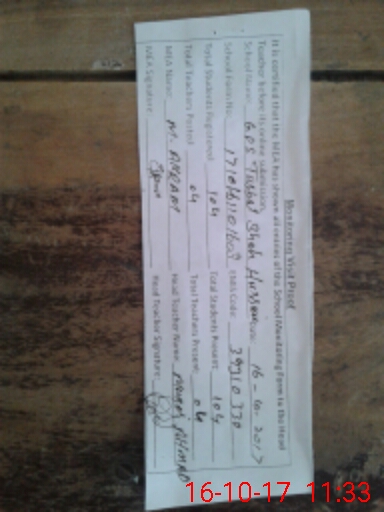 Monitoring Visit Proof
It is certified that the MEA has shown all entries of the School Monitoring Form to the Head
Teacher before its online submission.
School Name: GPS Shah Hussain Date: 16-10-2017
School Form No: EMIS Code:
Total Students Registered: 104 Total Students Present: 104
Total Teachers Posted: 04 Total Teachers Present: 04
MEA Name: M. Head Teacher Name: AHMAD
MEA Signature: Head Teacher Signature:
16-10-17 11:33